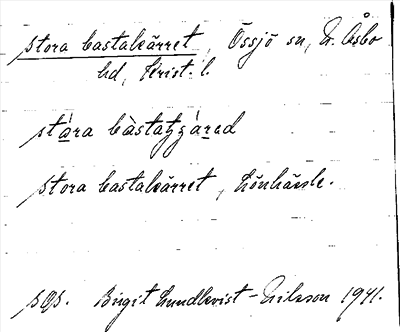 stora bastakärret, Össjö sn, N. Åsbo
hd, Krist. l.
stàra bàstatʒárəd
stora bastakärret, Lönhässle.
sgs. Birgit Lundkvist-Nilsson 1941.